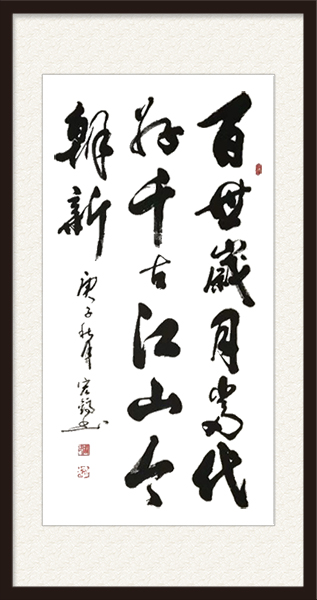 百世歲月當代
好千古江山今
朝新
庚子秋